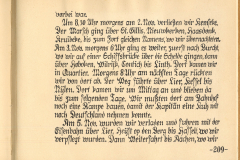 vorbei war.
Um 8,30 Uhr morgens am 2. Nov. verließen wir Temseke.
Der Marsch ging über St. Gillis, Nieuwkerken, Haasdonk,
Kruibeke, bis zum Fort gleichen Namens, wo wir übernachteten.
Am 3. Nov. morgens 8 Uhr ging es weiter, zuerst nach Burcht,
wo wir auf einer Schiffsbrücke über die Schelde gingen, dann
über Hoboken, Wilrijk, Contich bis Duffel. Dort kamen wir
in Quartier. Morgens 8 Uhr am nächsten Tage rückten
wir von dort ab. Der Weg führte über Lier, Kessel bis
Nijlen. Dort kamen wir um Mittag an und blieben da
bis zum folgenden Tage. Wir mußten dort am Bahnhof
noch eine Rampe bauen, damit der Kapitän eher sich nach
Deutschland nehmen konnte.
Am 5. Nov. wurden wir verladen und fuhren mit der
Eisenbahn über Lier, Heist op den Berg bis Hasselt, wo wir
verpflegt wurden. Dann Weiterfahrt bis Aachen, wo wir
-209-